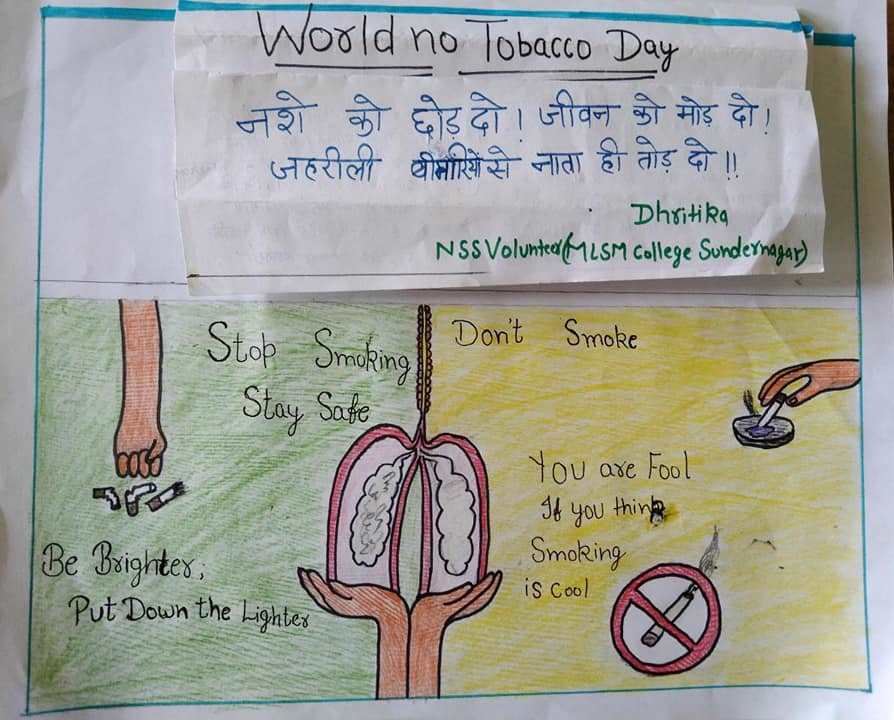 World no Tobacco Day
नशे को छोड़ दो। जीवन को मोड़ दो!
जहरीली बीमारियों से नाता ही तोड़ दो!!
Dhritika
NSS Volunteer (MLSM College Sundernagar)
Stop Smoking
Stay Safe
Don't Smoke
You are Fool
If you think
Smoking
is Cool
Be Brighter,
Put Down the Lighter